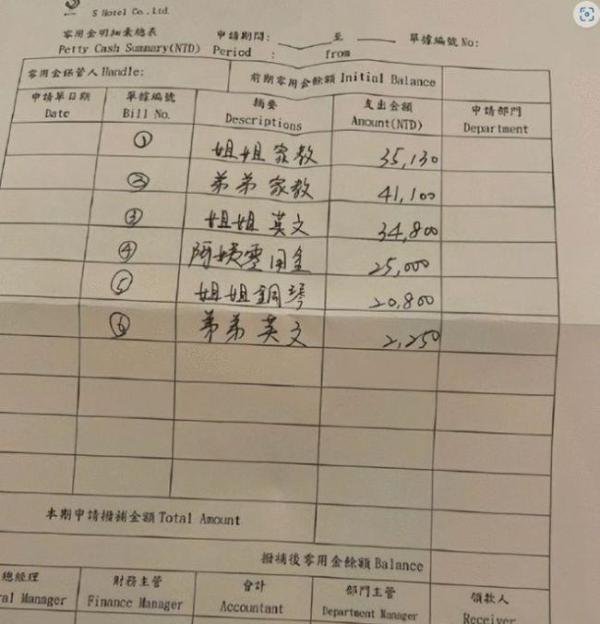 S Hotel Co., Ltd.
零用金明細彙總表 申請期間: 至 單據編號 No:
Petty Cash Summary(NTD) Period : from
零用金保管人 Handle: 前期零用金餘額 Initial Balance
申請單日期 單據編號 摘要 支出金額 申請部門
Date Bill No. Descriptions Amount(NTD) Department
① 姐姐家教 35,130
② 弟弟家教 41,100
③ 姐姐英文 34,800
④ 阿姨零用金 25,000
⑤ 姐姐鋼琴 20,800
⑥ 弟弟英文 2,250
本期申請撥補金額 Total Amount
撥補後零用金餘額 Balance
總經理 財務主管 會計 部門主管 領款人
ral Manager Finance Manager Accountant Department Manager Receiver